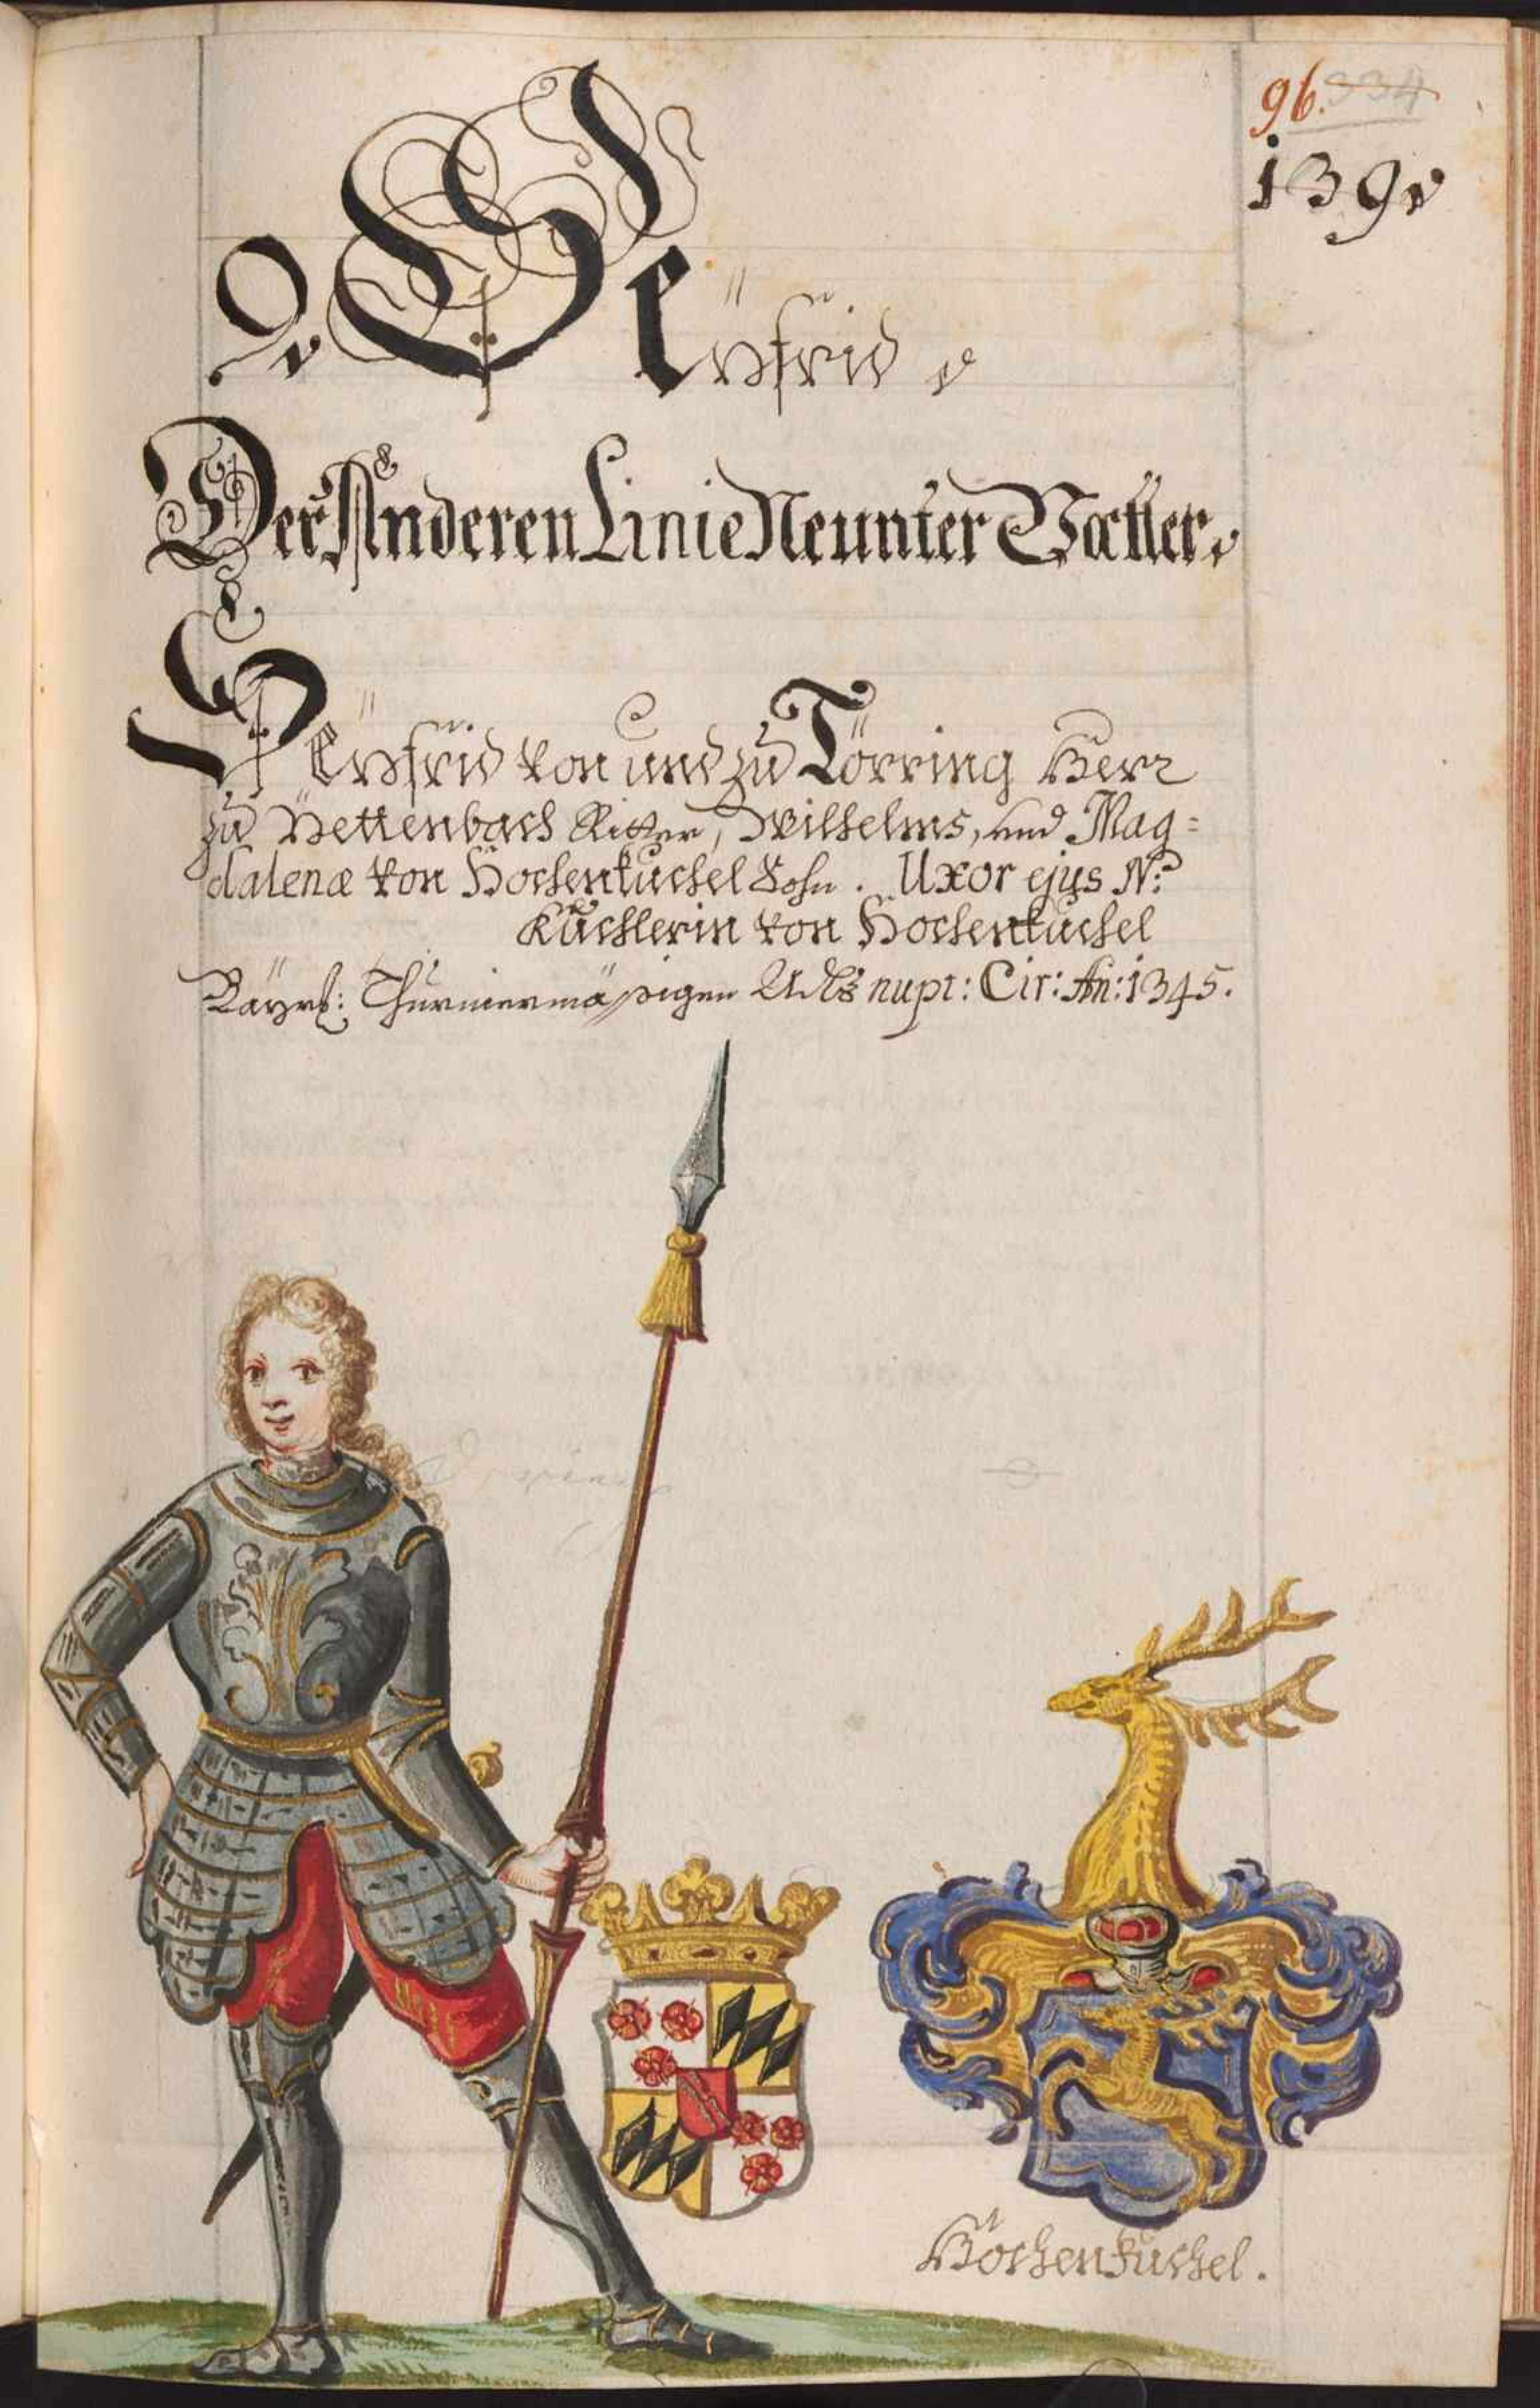 96. 334
139
9. Seÿfrid
Der Anderen Linie Neunter Vatter.
Seÿfrid von und zu Törring Herr
zu Tettenbach Ritter, Wilhelms, und Mag=
dalenæ von Hochenkuchel Sohn. Uxor ejus N:
Kuchlerin von Hochenkuchel
Bäyrl: Thurniermäsigen Adls nupt: Cir: An: 1345.
Hochenkuchel.